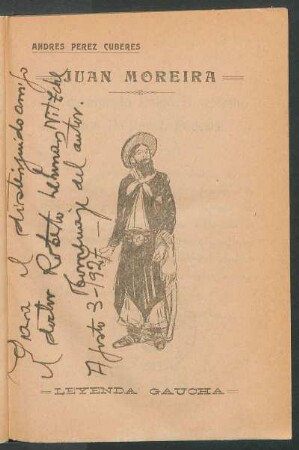 ANDRES PEREZ CUBERES
JUAN MOREIRA
Para el distinguido amigo
el doctor Roberto Lehmann Nitzche
Homenaje del autor.
Agosto 3-1927-
LEYENDA GAUCHA